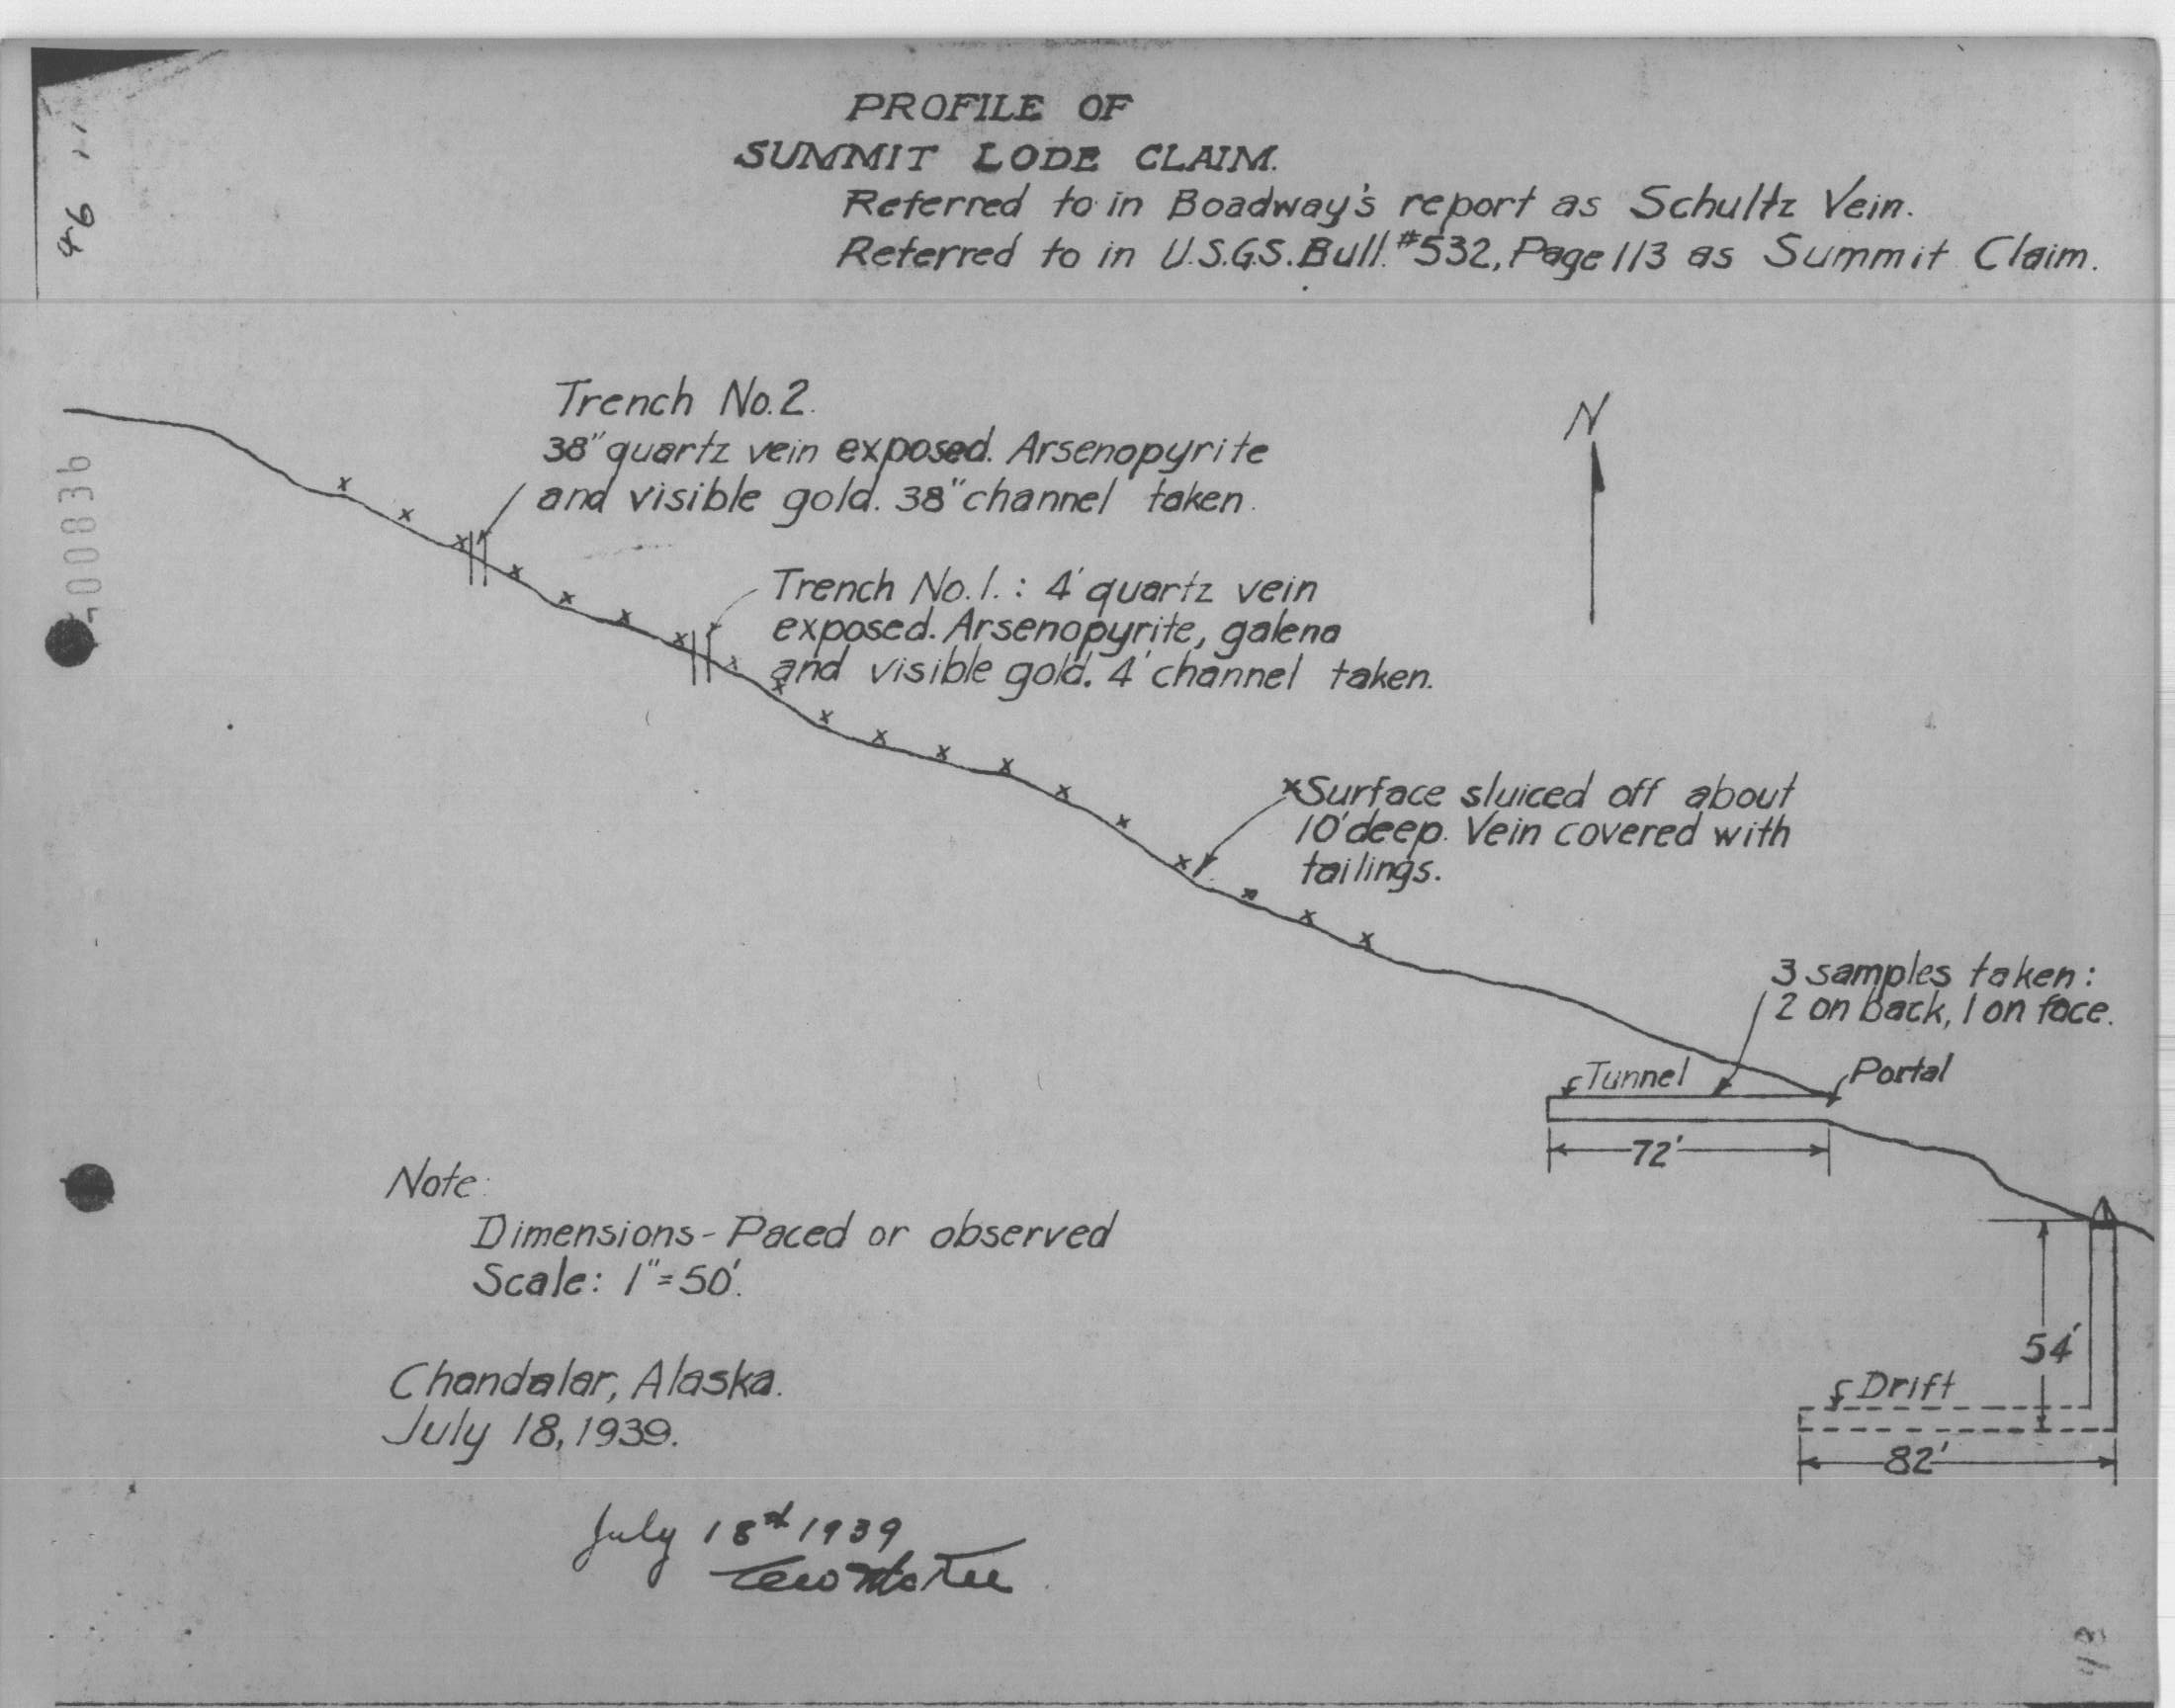 PROFILE OF
SUMMIT LODE CLAIM.
Referred to in Boadway's report as Schultz Vein.
Referred to in U.S.G.S. Bull. #532, Page 113 as Summit Claim.
46
Trench No. 2.
38" quartz vein exposed. Arsenopyrite
and visible gold. 38" channel taken.
N
Trench No. 1. : 4' quartz vein
exposed. Arsenopyrite, galena
and visible gold. 4' channel taken.
x Surface sluiced off about
10' deep. Vein covered with
tailings.
3 samples taken:
2 on back, 1 on face.
Tunnel
Portal
72'
Note:
Dimensions - Paced or observed
Scale: 1" = 50'.
54'
Chandalar, Alaska.
July 18, 1939.
Drift
82'
July 18th 1939